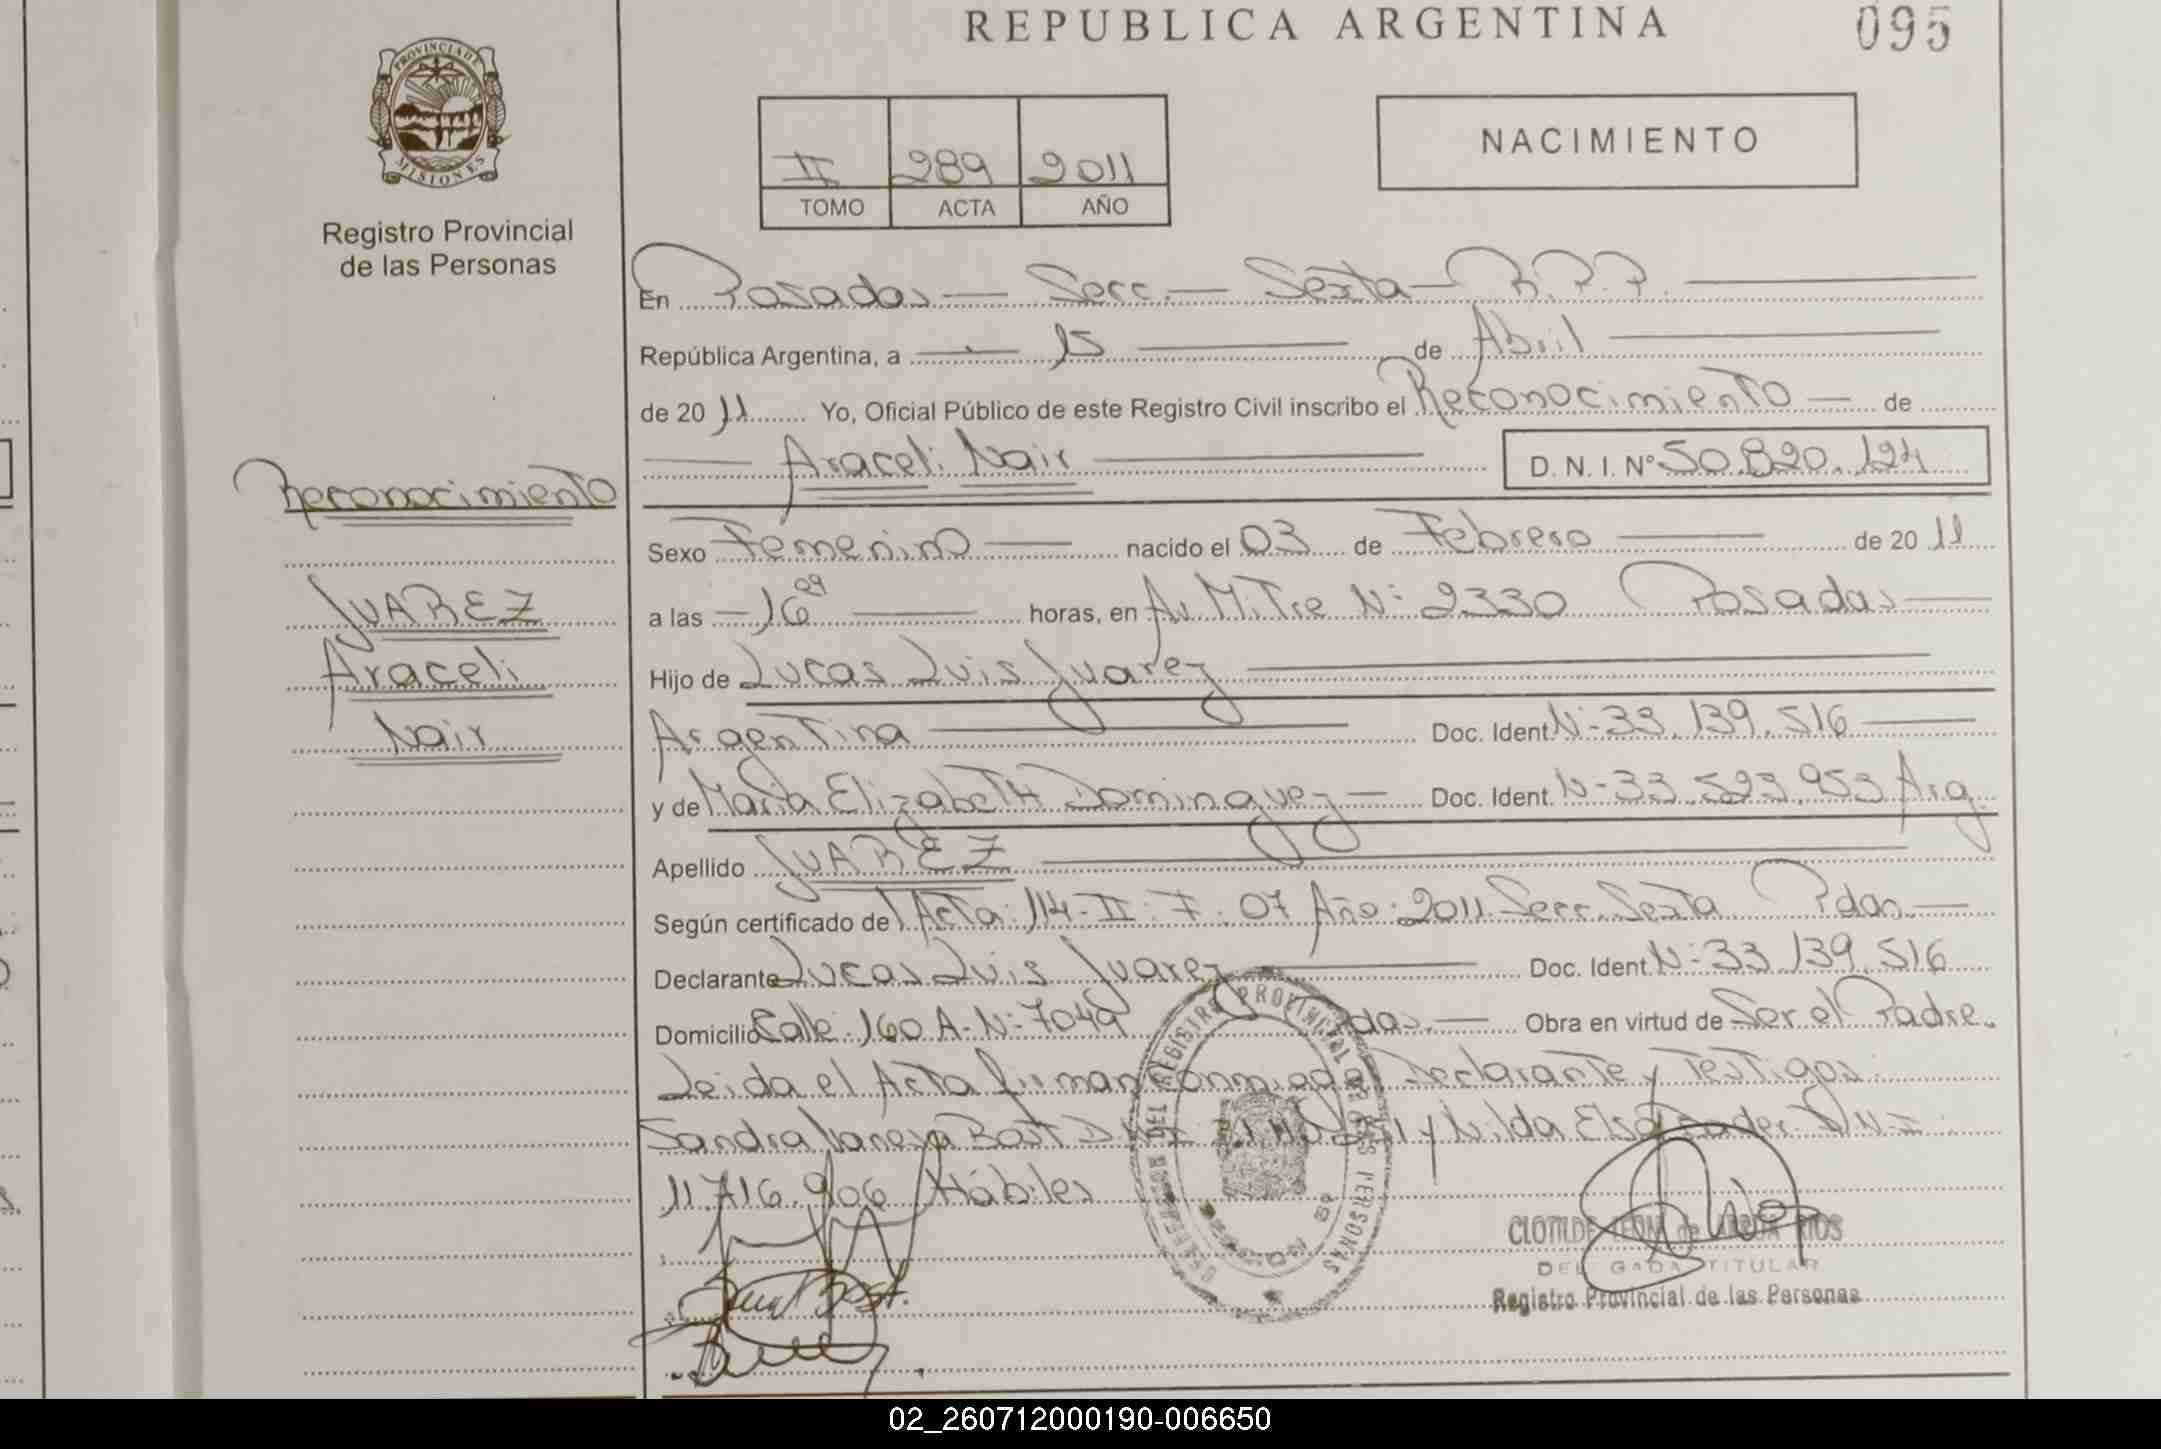 REPUBLICA ARGENTINA
095
PROVINCIA DE
MISIONES
Registro Provincial
de las Personas
II 289 2011
TOMO ACTA AÑO
NACIMIENTO
En Posadas — Secc. — Sexta — R.P.P.
República Argentina, a 15 de Abril
de 2011 Yo, Oficial Público de este Registro Civil inscribo el Reconocimiento de
Araceli Nair D. N. I. Nº 50.820.124
Reconocimiento
JUAREZ
Araceli
Nair
Sexo Femenino nacido el 03 de Febrero de 2011
a las 16 29 horas, en Av. Mitre Nº 2330 Posadas
Hijo de Lucas Luis Juarez
Argentina Doc. Ident. Nº 33.139.516
y de Maria Elizabeth Dominguez Doc. Ident. Nº 33.523.953 Arg.
Apellido JUAREZ
Según certificado de Acta: 114 - II: T: 07 Año: 2011 Secc. Sexta Pdas.
Declarante Lucas Luis Juarez Doc. Ident. Nº 33.139.516
Domicilio Calle 160 A. Nº 7049 Pdas. Obra en virtud de Ser el Padre.
Leida el Acta firman conmigo Declarante y Testigos:
Sandra Vanesa Bost y Nilda Elsa D.N.I
11.716.906 Hábiles
REGISTRO PROVINCIAL DE LAS PERSONAS
CLOTILDE de RIOS
DELEGADA TITULAR
Registro Provincial de las Personas
02_260712000190-006650